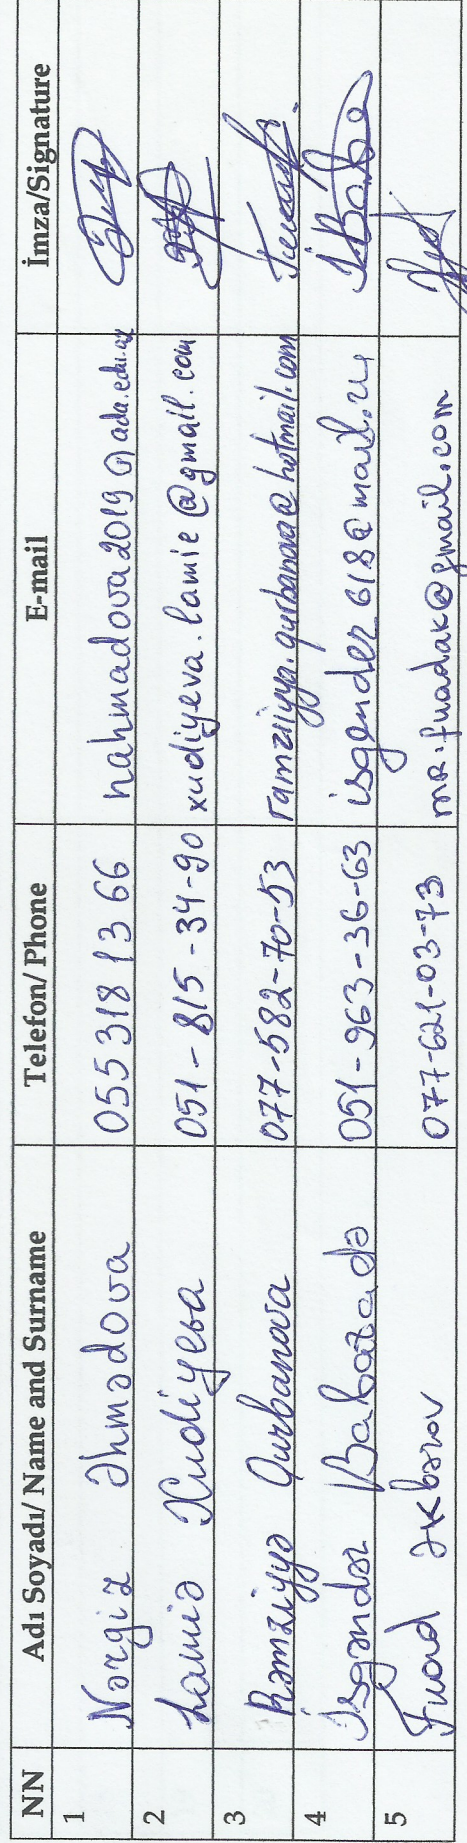 NN Adı Soyadı/ Name and Surname Telefon/ Phone E-mail İmza/Signature
1 Nərgiz Əhmədova 055 318 13 66 nahmadova2019@ada.edu.az
2 Lamiə Xudiyeva 051-815-34-90 xudiyeva.lamie@gmail.com
3 Rəmziyyə Qurbanova 077-582-70-53 ramziyya.qurbanova@hotmail.com
4 İsgəndər Babazadə 051-963-36-63 isgender618@mail.ru
5 Fuad Əkbərov 077-621-03-73 mr.fuadak@gmail.com